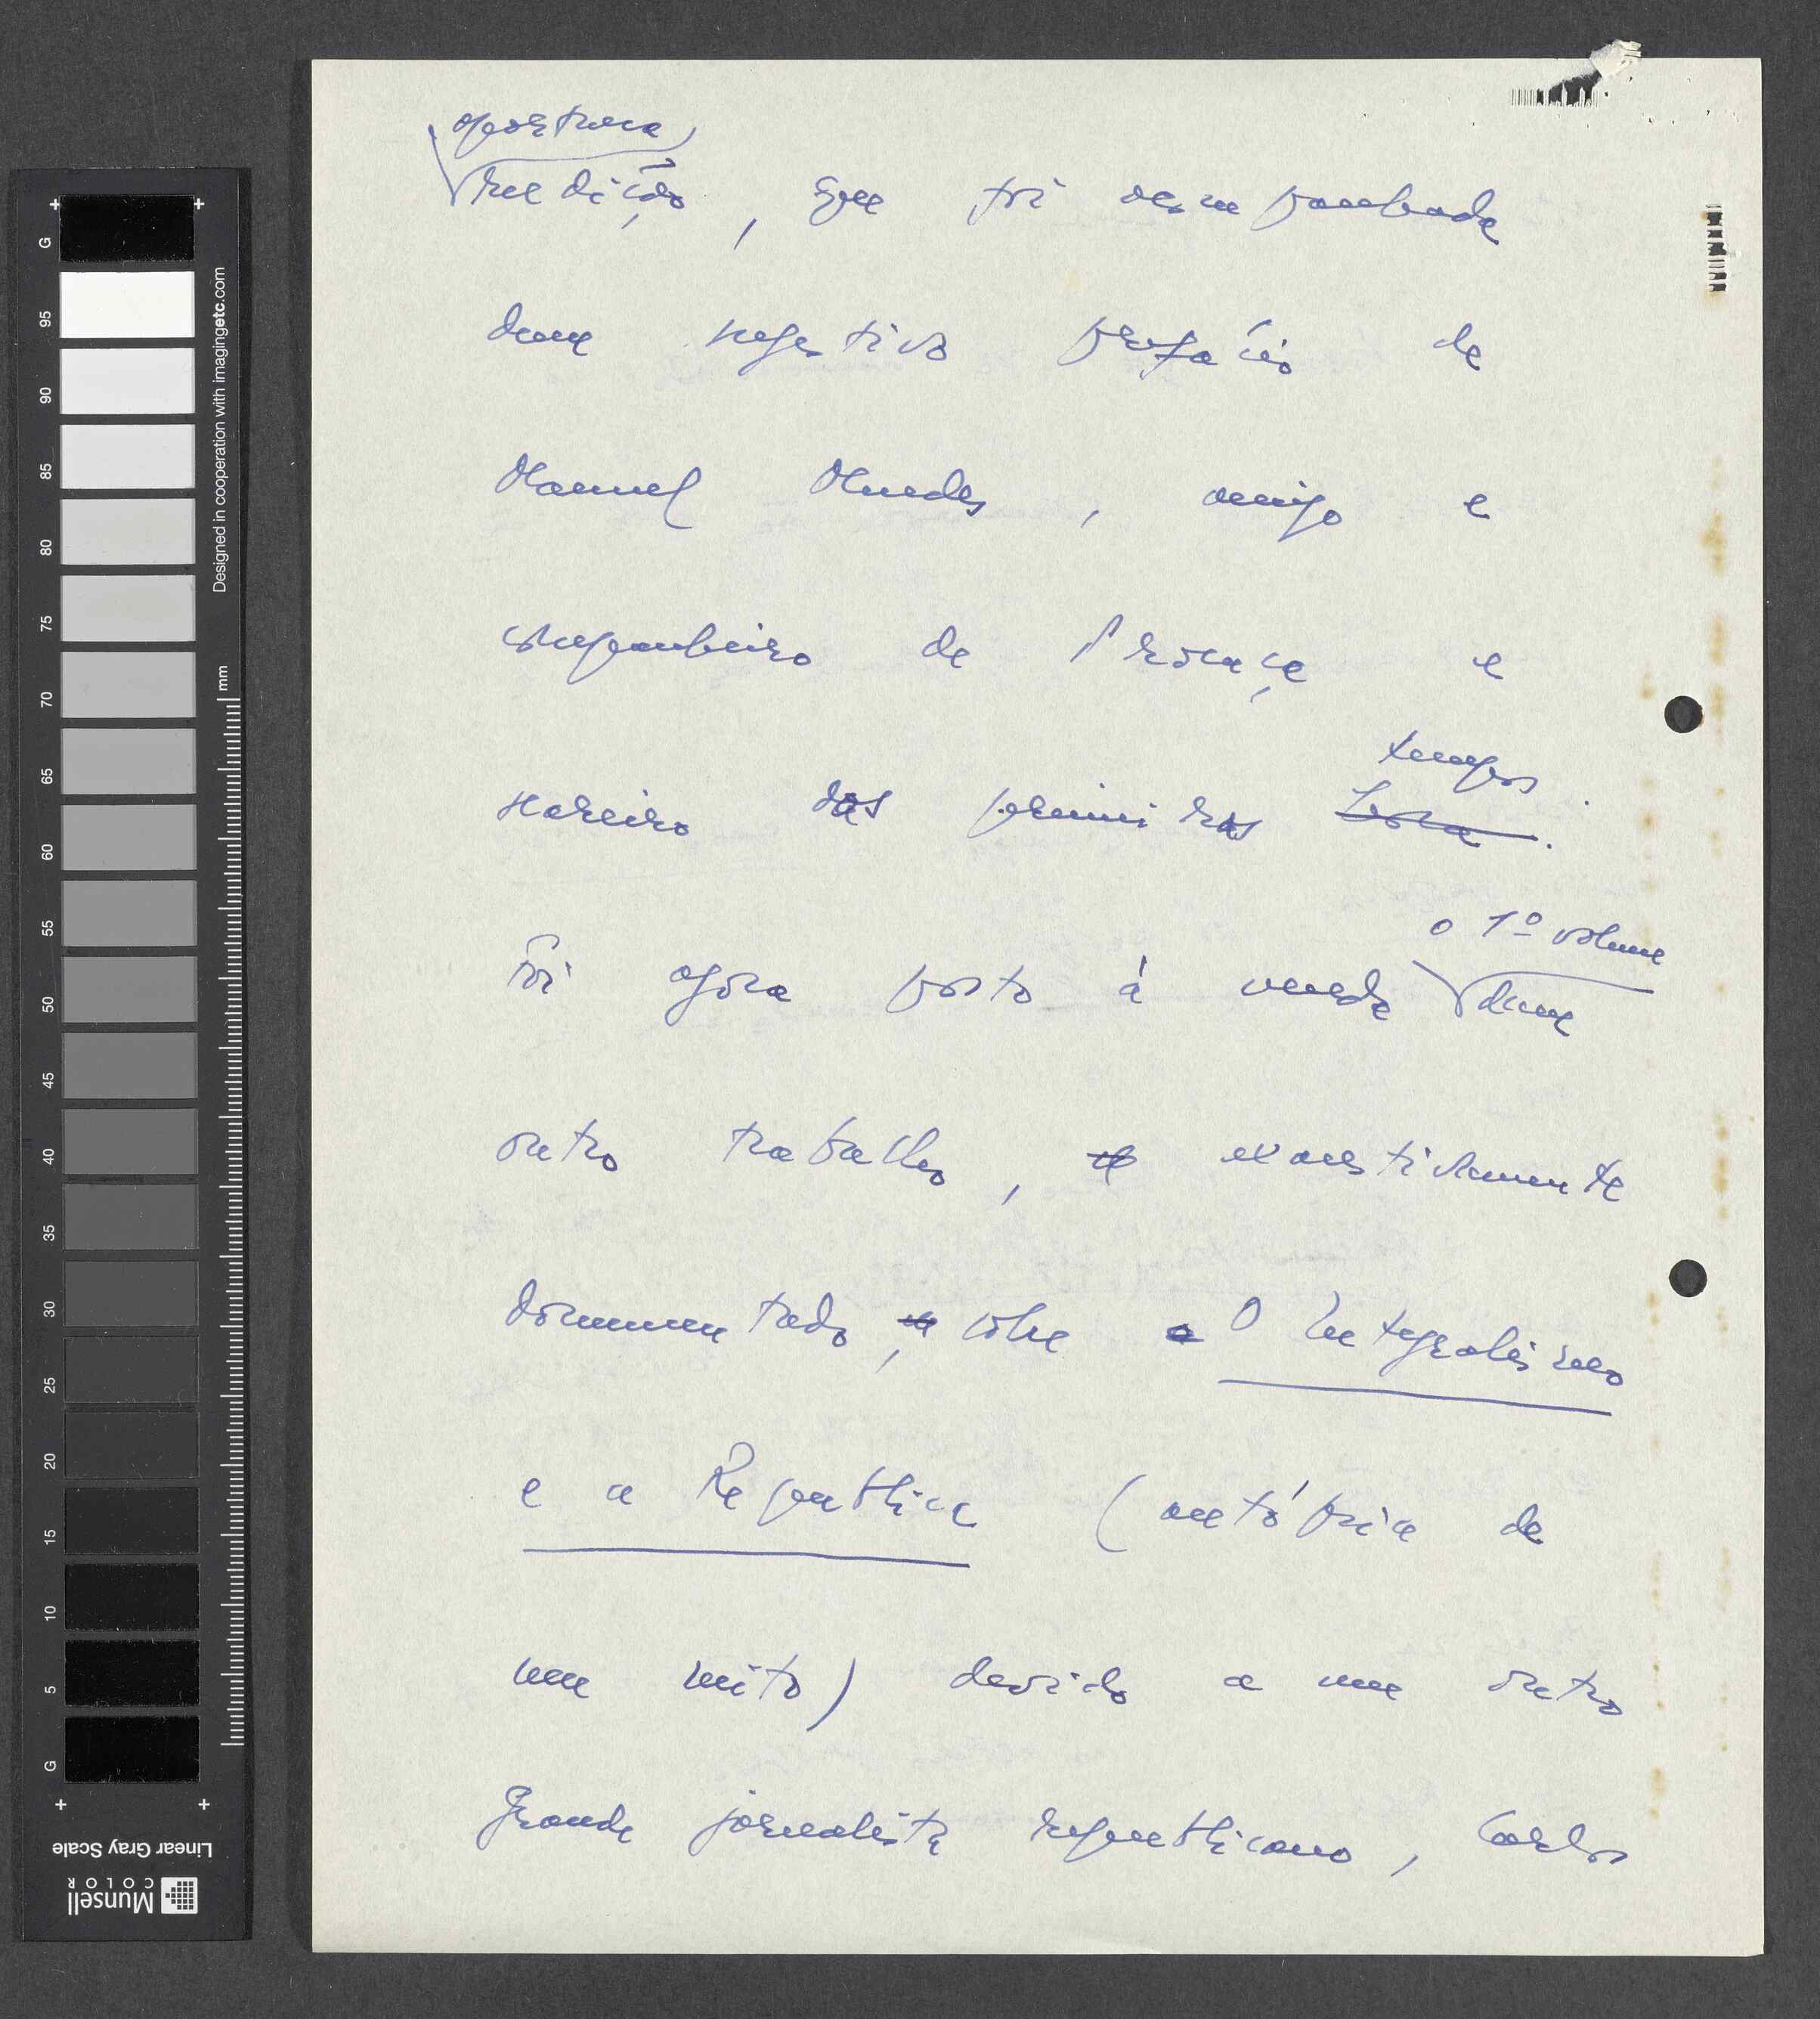 oportuna
reedição, que foi acompanhada
dum sugestivo prefácio de
Manuel Mendes, amigo e
companheiro de Proença e
seareiro dos primeiros
tempos.
Foi agora posto à venda
o 1º volume
dum
outro trabalho, exaustivamente
documentado, sobre O Integralismo
e a República (autópsia de
um mito) devido a um outro
grande jornalista republicano, Carlos
G
95
90
85
80
75
70
65
60
55
50
45
40
35
30
25
20
15
10
5
G
Designed in cooperation with imagingetc.com
mm
Linear Gray Scale
Munsell
COLOR